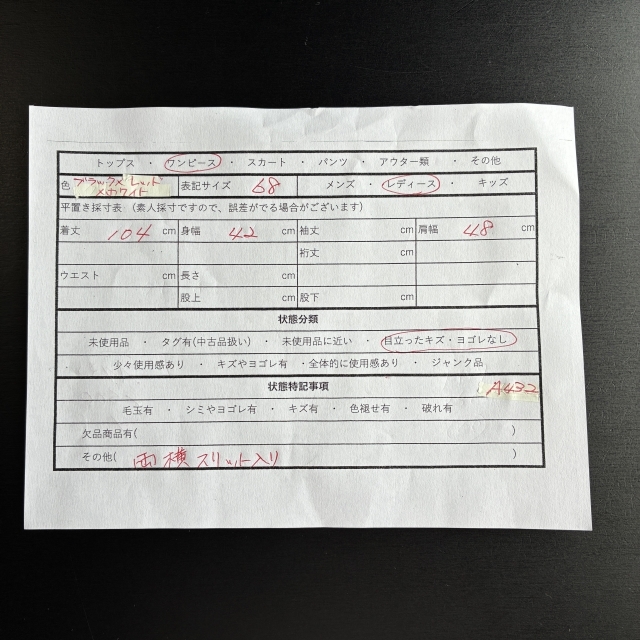 トップス ・ ワンピース ・ スカート ・ パンツ ・ アウター類 ・ その他
色 ブラック×レッド×ホワイト 表記サイズ 68 メンズ ・ レディース ・ キッズ
平置き採寸表 (素人採寸ですので、誤差がでる場合がございます)
着丈 104 cm 身幅 42 cm 袖丈 cm 肩幅 48 cm
裄丈 cm
ウエスト cm 長さ cm
股上 cm 股下 cm
状態分類
未使用品 ・ タグ有(中古品扱い) ・ 未使用品に近い ・ 目立ったキズ・ヨゴレなし
少々使用感あり ・ キズやヨゴレ有 ・全体的に使用感あり ・ ジャンク品
状態特記事項 A432
毛玉有 ・ シミやヨゴレ有 ・ キズ有 ・ 色褪せ有 ・ 破れ有
欠品商品有( )
その他( 両横スリット入り )